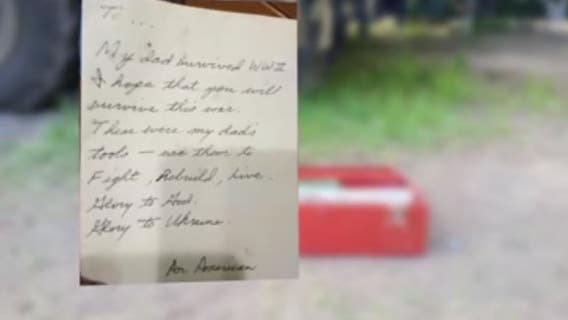 To ...
My Dad survived WW II
I hope that you will
survive this war.
These were my dad's
tools — use them to
Fight, Rebuild, live.
Glory to God.
Glory to Ukraine.
An American